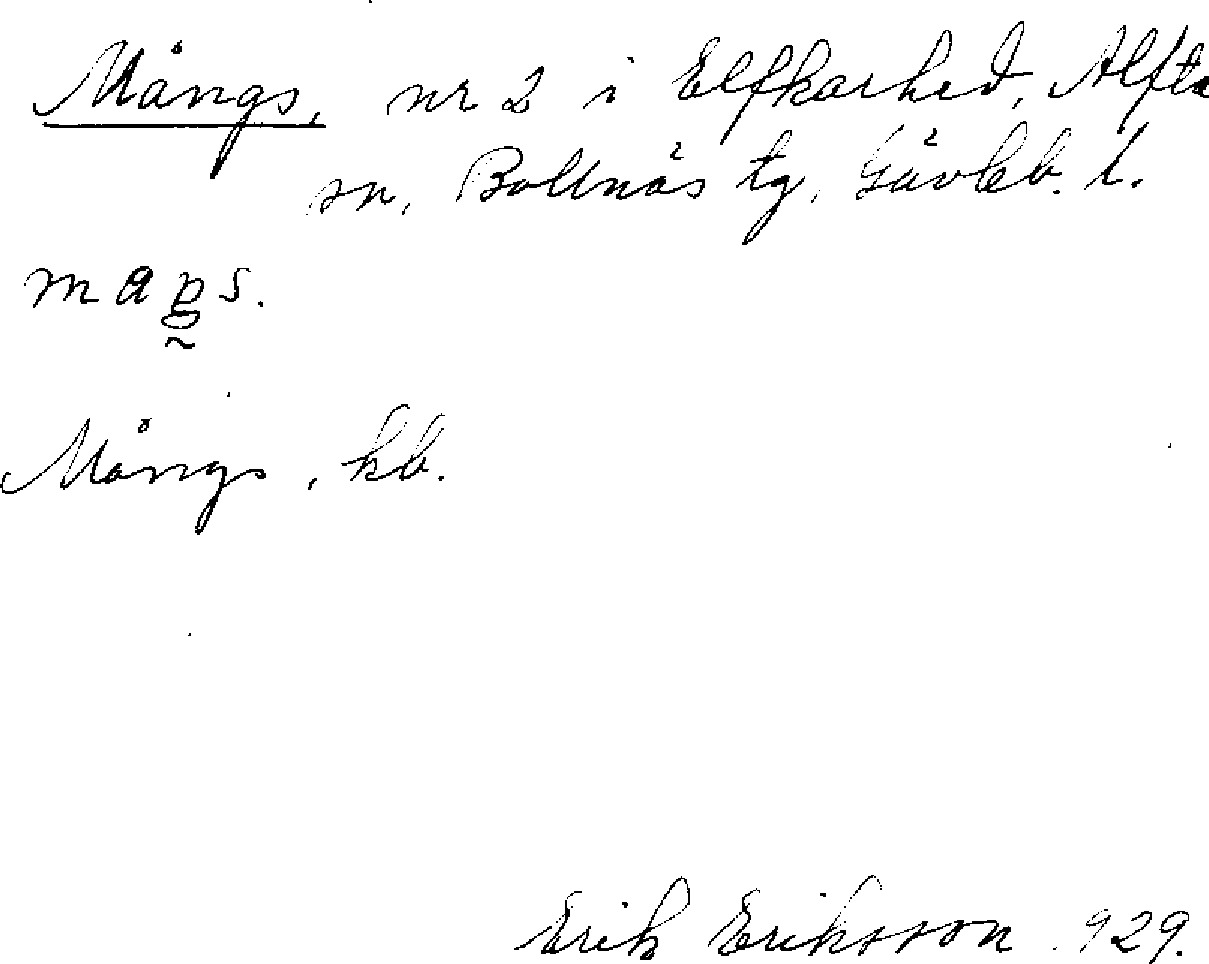 Mångs, nr 2 i Elfkarhed, Alfta
sn, Bollnäs tg, Gävleb. l.
Mångs, kb.
Erik Eriksson 929.